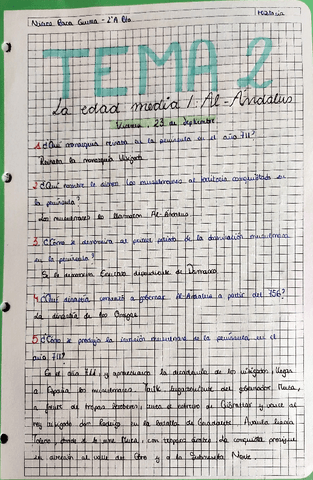 Nerea Baca Guerra - 2ºA Bto.
Historia
TEMA 2
La edad media I: Al-Ándalus
Viernes, 23 de septiembre
1. ¿Qué monarquía reinaba en la península en el año 711?
Reinaba la monarquía visigoda
2. ¿Qué nombre le dieron los musulmanes al territorio conquistado en
la península?
Los musulmanes lo llamaron Al-Ándalus
3. ¿Cómo se denomina al primer periodo de la dominación musulmana
en la península?
Se le denomina Emirato dependiente de Damasco
4. ¿Qué dinastía comenzó a gobernar Al-Ándalus a partir del 756?
La dinastía de los Omeyas
5. ¿Cómo se produjo la invasión musulmana de la península en el
año 711?
En el año 711, y aprovechando la decadencia de los visigodos, llegan
a España los musulmanes. Tarik, lugarteniente del gobernador Muza,
al frente de tropas bereberes, cruza el estrecho de Gibraltar y vence al
rey visigodo don Rodrigo en la batalla de Guadalete. Avanza hacia
Toledo, donde se le une Muza, con tropas árabes. La conquista prosigue
en dirección al valle del Ebro y a la Submeseta Norte.